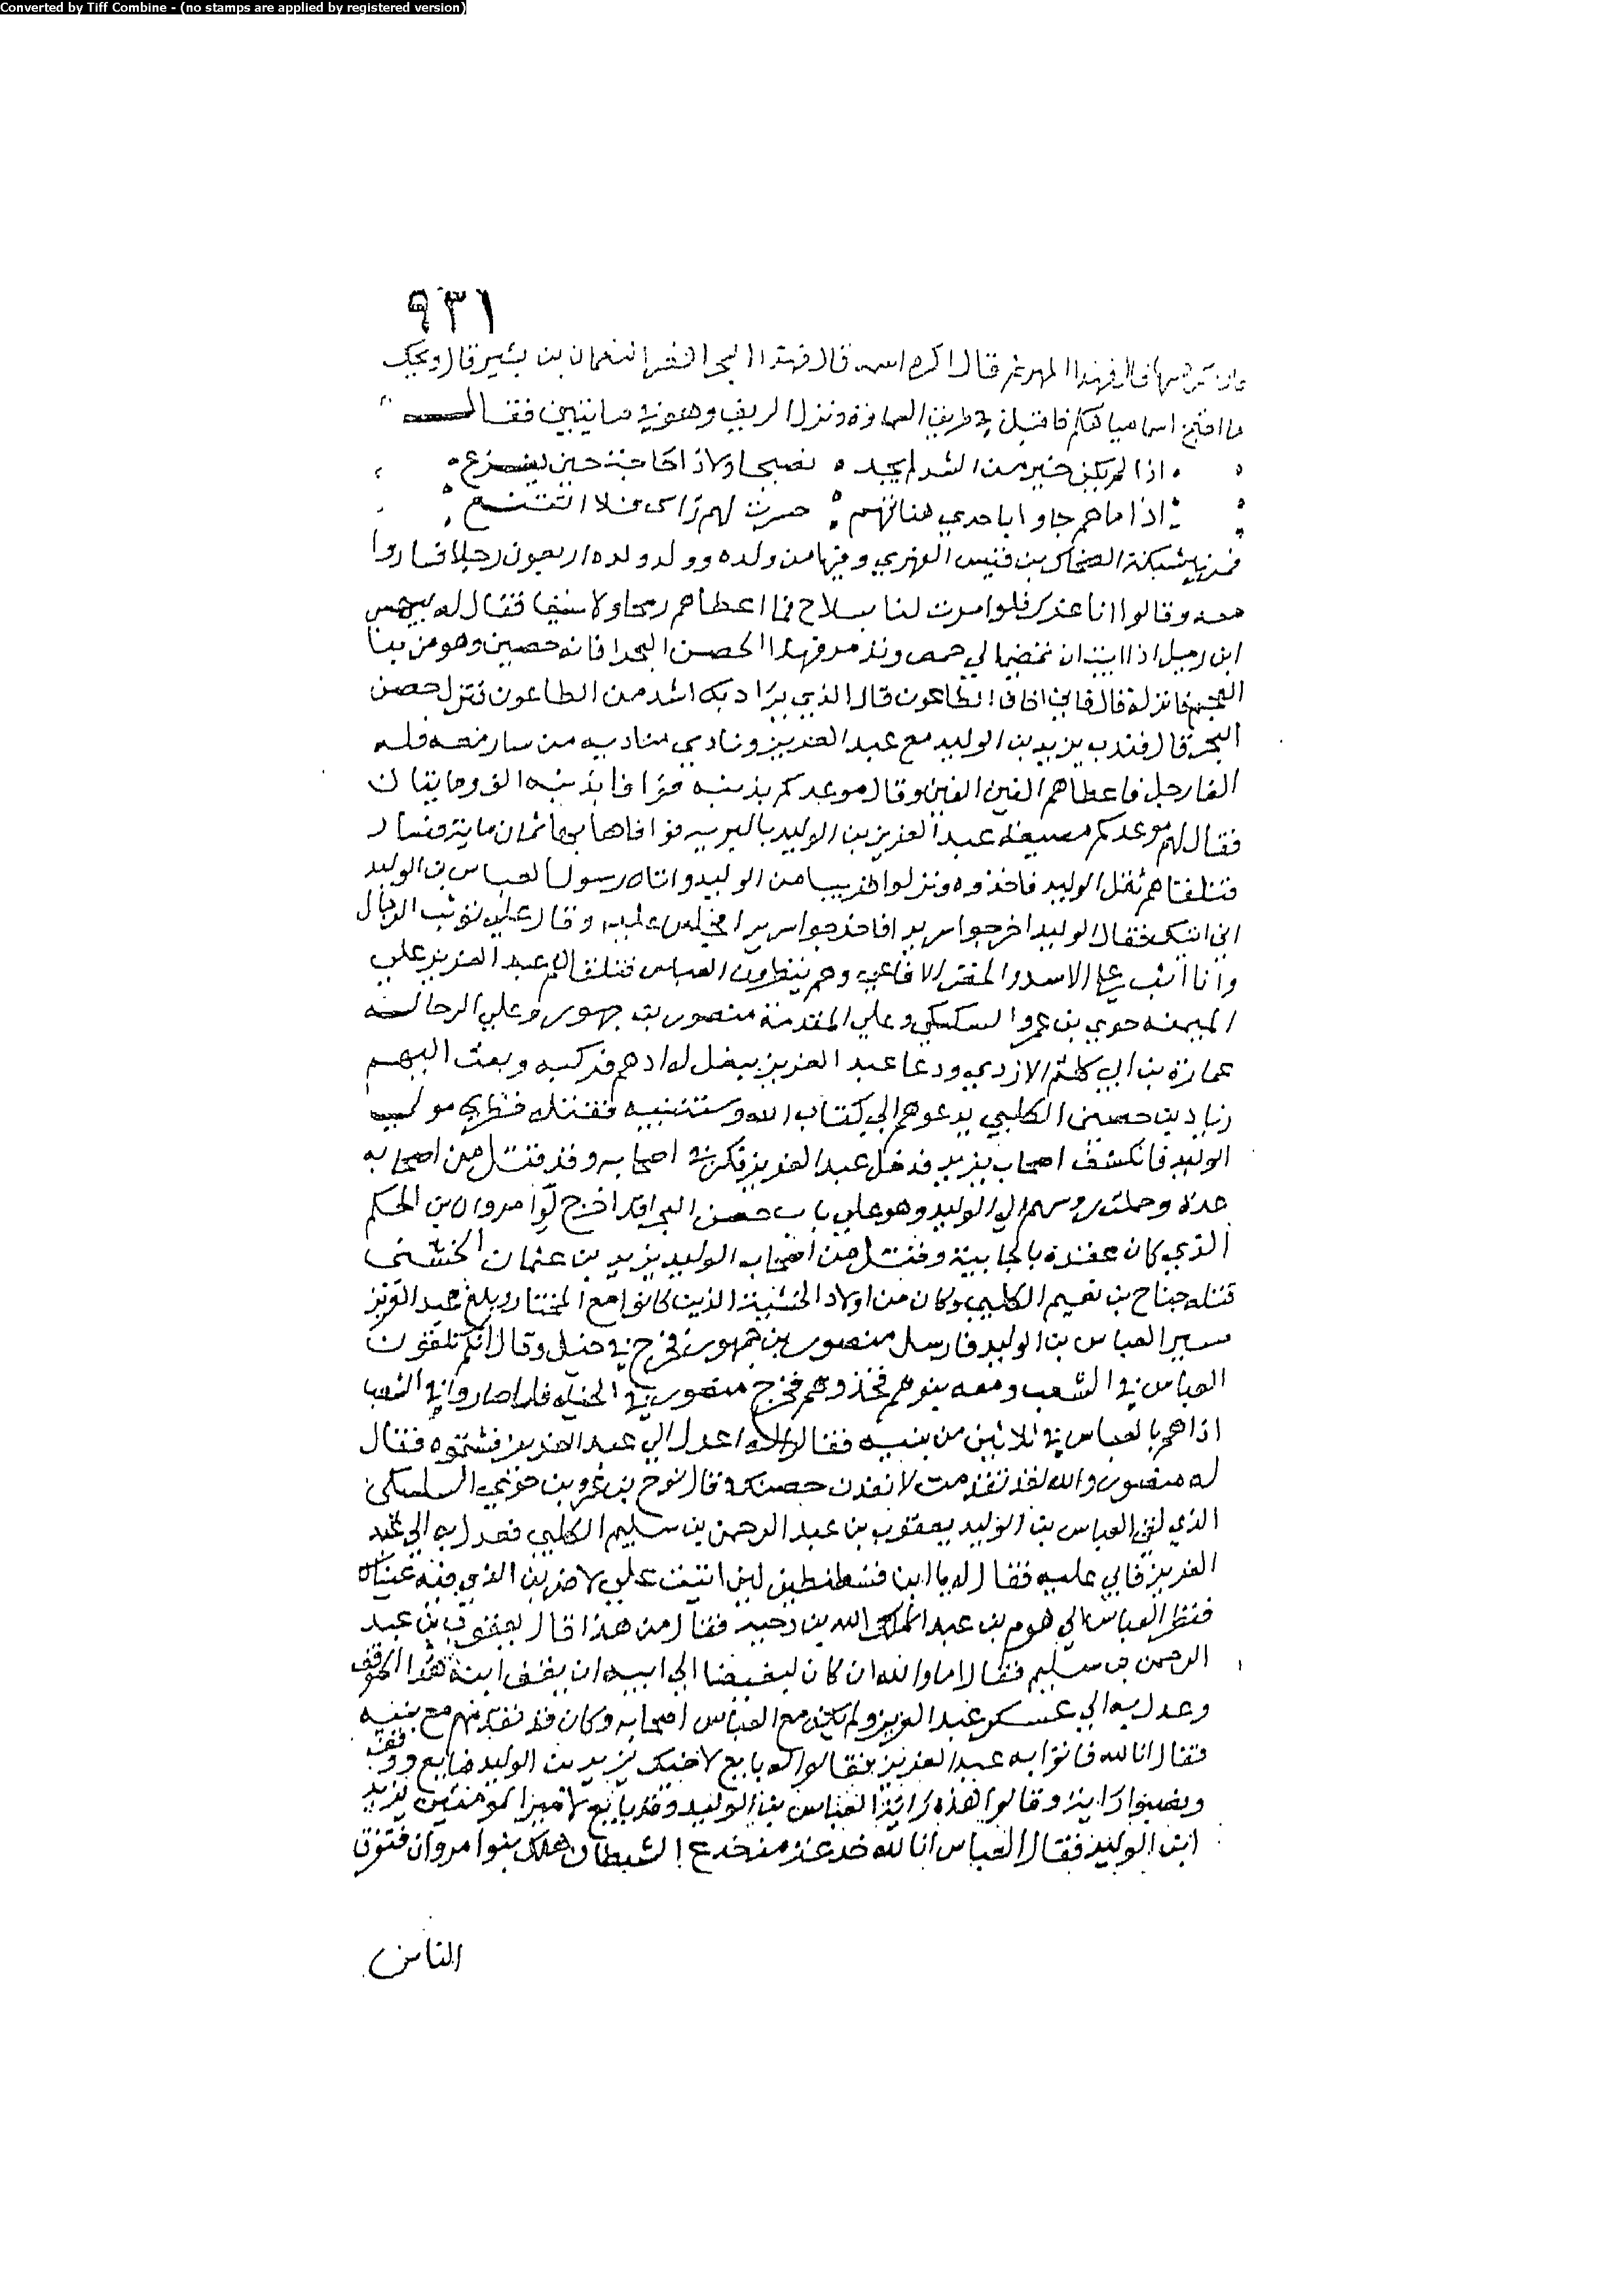 Converted by Tiff Combine - (no stamps are applied by registered version)
٩٣١
قال فهذا الهزيم قال اكره اسمه قال فهذا البخرا قصر النعمان بن بشير قال ويحك
ما اقبح اسما مياهكم فاقبل في طريق السماوة ونزل الريف وهو في مايتين فقال
اذا لم يكن خير مع الشر لم يجد نصيحا ولا ذا حاجة حين يفزع
اذا ما هم جاوا باحدي هناتهم حسرت لهم راسي فلا اتقنع
فمر بشبكة الضحاك بن قيس الفهري وفيها من ولده وولد ولده اربعون رجلا فساروا
معه وقالوا انا عزل فلو امرت لنا بسلاح فما اعطاهم رمحا ولا سيفا فقال له بيهس
ابن زميل اذا ابيت ان تمضي الي حمص وتدمر فهذا الحصن البخرا فانه حصين وهو من بنا
العجم فانزله قال فاني اخاف الطاعون قال الذي يراد بك اشد من الطاعون فنزل حصن
البخرا قال فندب يزيد بن الوليد مع عبد العزيز ونادي مناديه من سار معه فله
الفا رجل فاعطاهم الفين الفين وقال موعدكم بذنبه فوافا بذنبه الف ومايتان
فقال لهم موعدكم مصنعة عبد العزيز بن الوليد بالبرية فوافاها بها ثمان ماية فسار
فتلقاهم ثقل الوليد فاخذوه ونزلوا قريبا من الوليد واتاه رسول العباس بن الوليد
اني اتيك فقال الوليد اخرجوا سريرا فاخرجوا سريرا فجلس عليه وقال علي توثب الرجال
وانا اثب علي الاسد واتخصر الافاعي وهم ينتظرون العباس فقاتلهم عبد العزيز علي
الميمنة حوي بن عمرو السكسكي وعلي المقدمة منصور بن جمهور وعلي الرجالة
عمارة بن ابي كلثم الازدي ودعا عبد العزيز ببغل له ادهم فركبه وبعث اليهم
زياد بن حصين الكلبي يدعوهم الي كتاب الله وسنة نبيه فقتله قطري مولي
الوليد فانكشف اصحاب يزيد فدخل عبد العزيز فكر في اصحابه وقد قتل من اصحابه
عدة وحملت روسهم الي الوليد وهو علي باب حصن البخرا قد اخرج لوا مروان بن الحكم
الذي كان عقده بالجابية وقتل من اصحاب الوليد يزيد بن عثمان الخشني
قتله جناح بن نعيم الكلبي وكان من اولاد الخشبية الذين كانوا مع المختار وبلغ عبد العزيز
مسير العباس بن الوليد فارسل منصور بن جمهور فخرج في خيل وقال انكم تلقون
العباس في الشعب ومعه بنوه فخذوهم فخرج منصور في الخيل فلما صاروا في الشعب
اذا هم بالعباس في ثلاثين من بنيه فقالوا له اعدل الي عبد العزيز فشتمهم فقال
له منصور والله لئن تقدمت لانفذن حصنك قال نوح بن عمرو بن حوي السكسكي
الذي لقي العباس بن الوليد يعقوب بن عبد الرحمن بن سليم الكلبي فعدل به الي عبد
العزيز فابي عليه فقال له يا ابن قسطنطين لئن ابيت علي لاضربن الذي فيه عيناك
فنظر العباس الي هرم بن عبد الله بن دحيه فقال من هذا قال يعقوب بن عبد
الرحمن بن سليم فقال اما والله ان كان لبغيضا الي ابيه ان يقف ابنه هذا الموقف
وعدل به الي عسكر عبد العزيز ولم يكن مع العباس اصحابه وكان قد تقدمهم مع بنيه
فقال انا لله فاتوا به عبد العزيز فقالوا له بايع لاخيك يزيد بن الوليد فبايع ووقف
ونصبوا راية وقالوا هذه راية العباس بن الوليد وقد بايع لامير المومنين يزيد
ابن الوليد فقال العباس انا لله خدعة من خدع الشيطان هلك بنوا مروان فتفرق
الناس